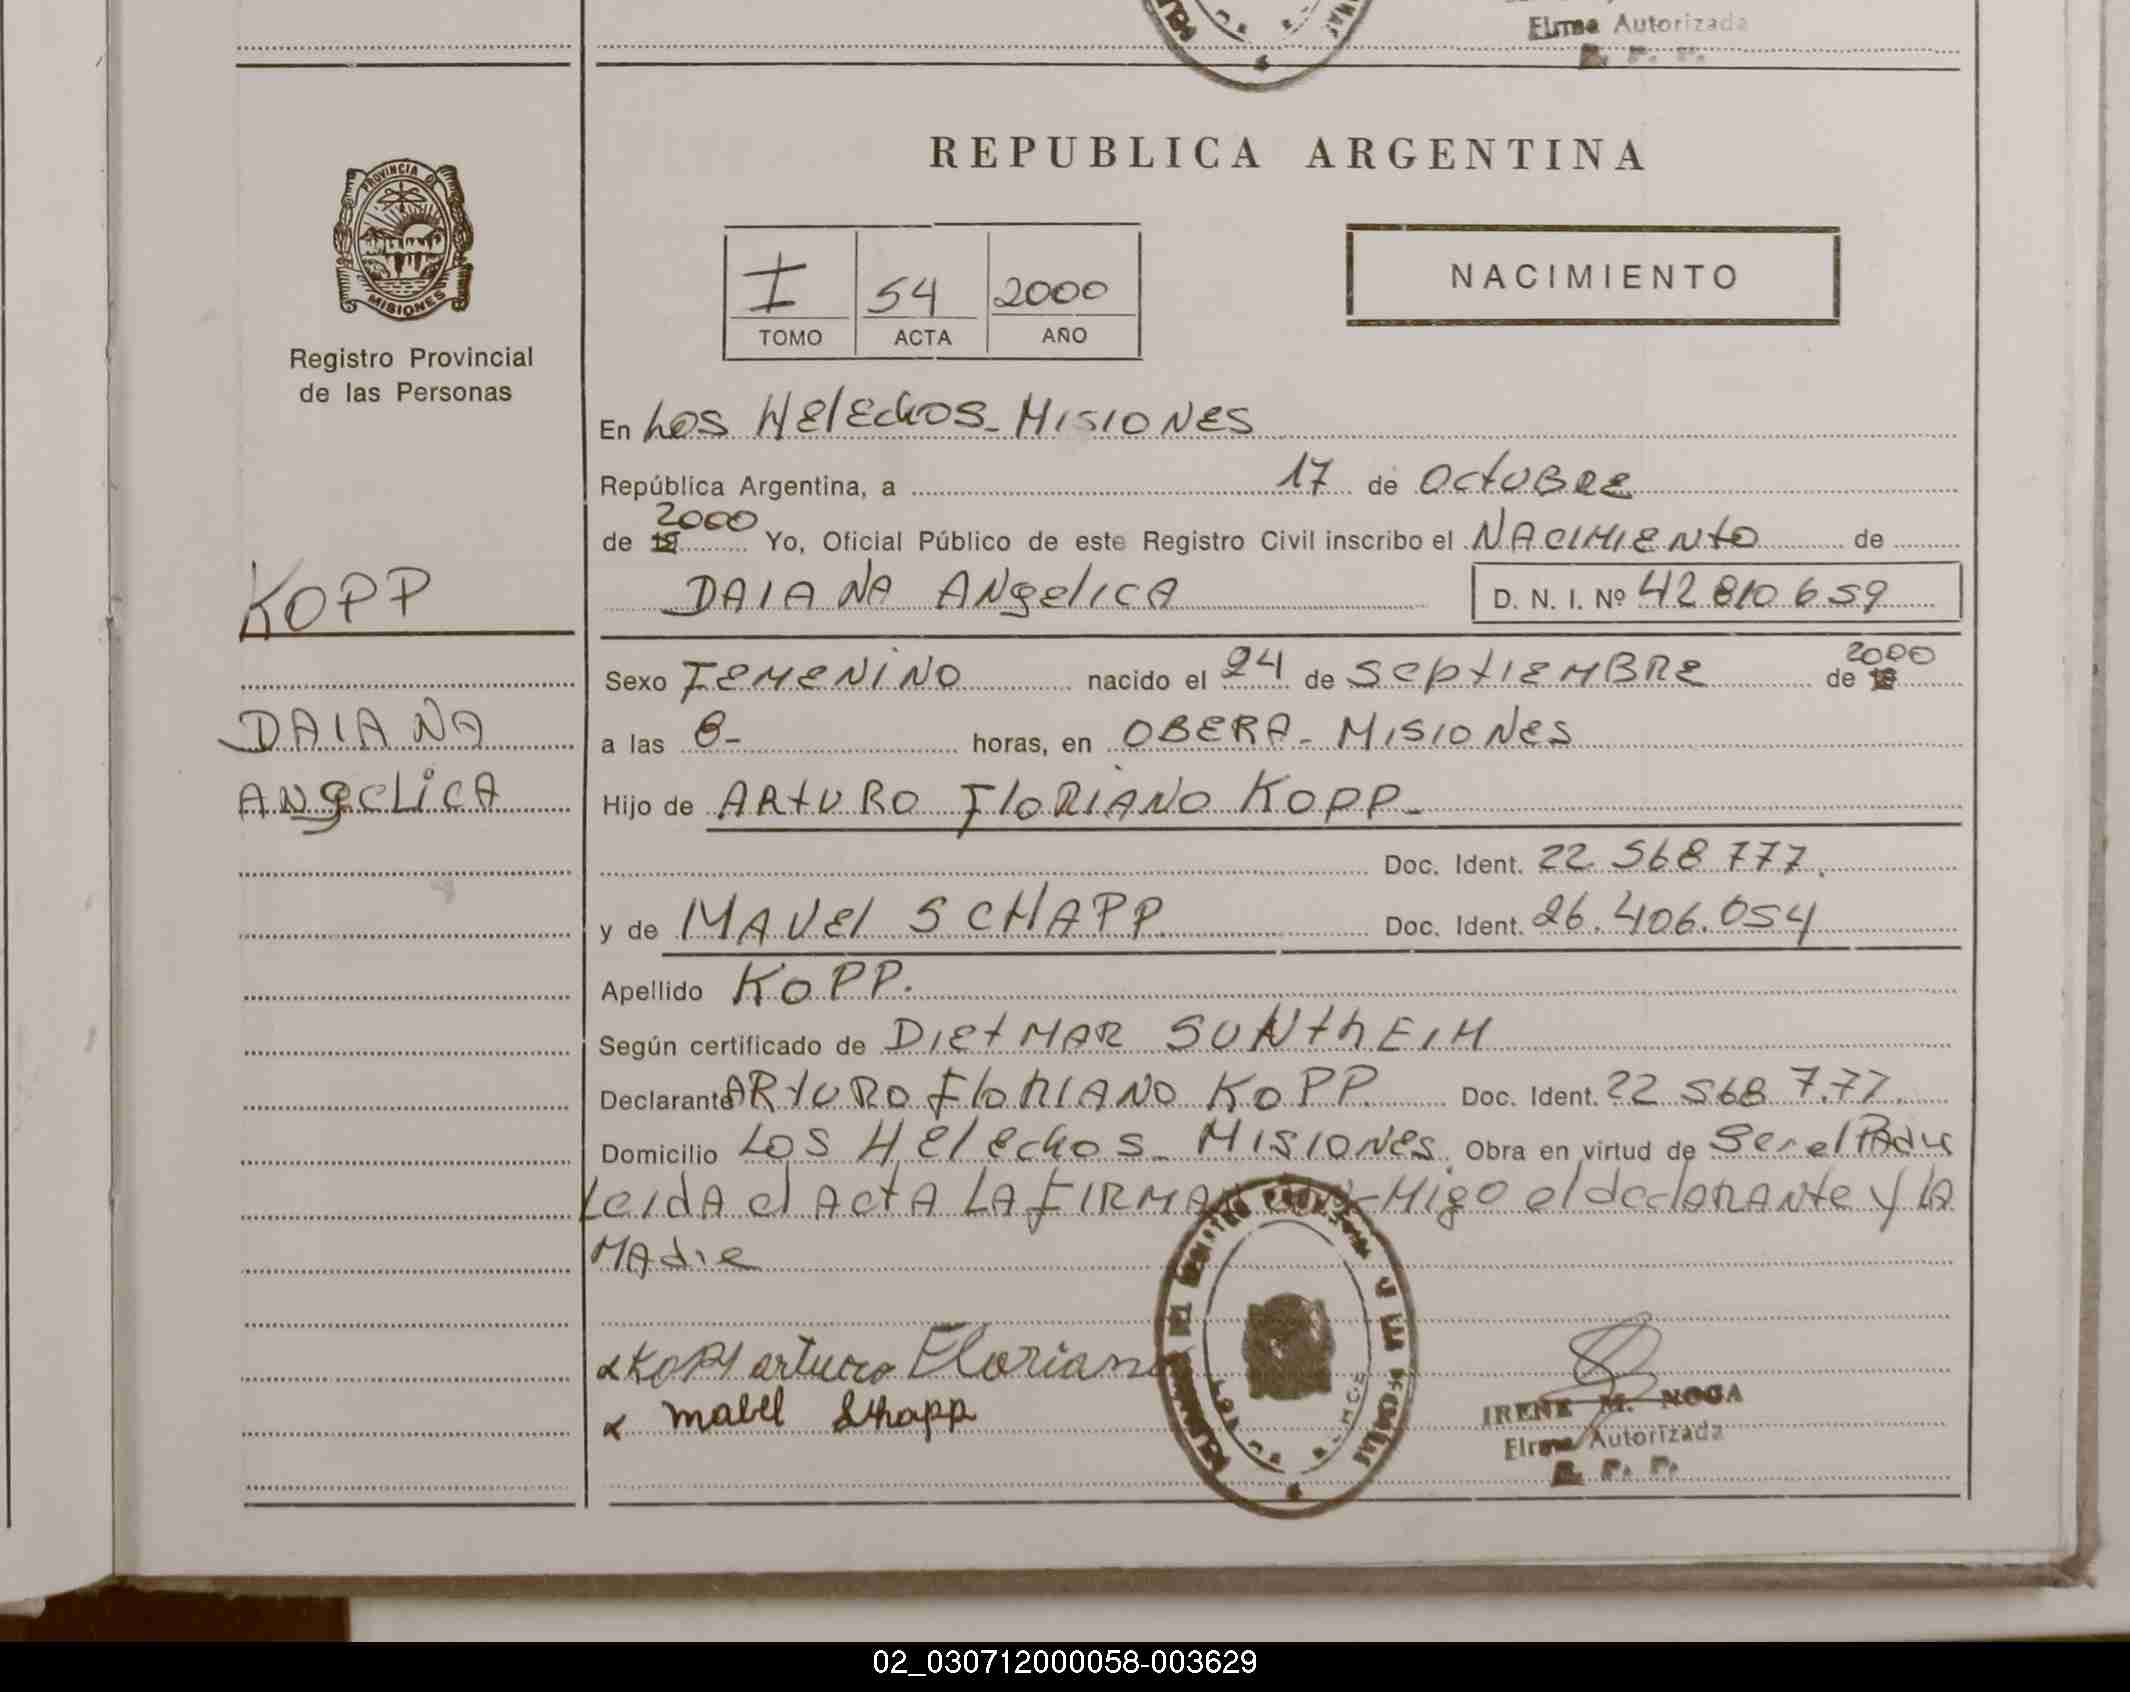 Firma Autorizada
R. P. P.
PROVINCIA DE
MISIONES
Registro Provincial
de las Personas
KOPP
DAIANA
ANgeLicA
REPUBLICA ARGENTINA
I 54 2000
TOMO ACTA AÑO
NACIMIENTO
En Los Helechos - Misiones
República Argentina, a 17 de Octubre
2000
de 19 Yo, Oficial Público de este Registro Civil inscribo el Nacimiento de
DAIANA ANgelica D. N. I. Nº 42 810 659
Sexo Femenino nacido el 24 de Septiembre de 19 2000
a las 8- horas, en OBERA - Misiones
Hijo de ARTURO FLORIANO KOPP -
Doc. Ident. 22.568 777.
y de MAVEl SCHAPP Doc. Ident. 26.406.054
Apellido KOPP.
Según certificado de DIETMAR SUNTHEIM
Declarante ARTURO FLORIANO KOPP Doc. Ident. 22 568 777.
Domicilio Los Helechos - Misiones. Obra en virtud de Ser el Padre
Leida el ActA LA FIRMAN -Migo el declarante y la
Madre
x Kopp arturo Floriano
x mabel Shapp
IRENE M. NOGA
Firma Autorizada
R. P. P.
02_030712000058-003629